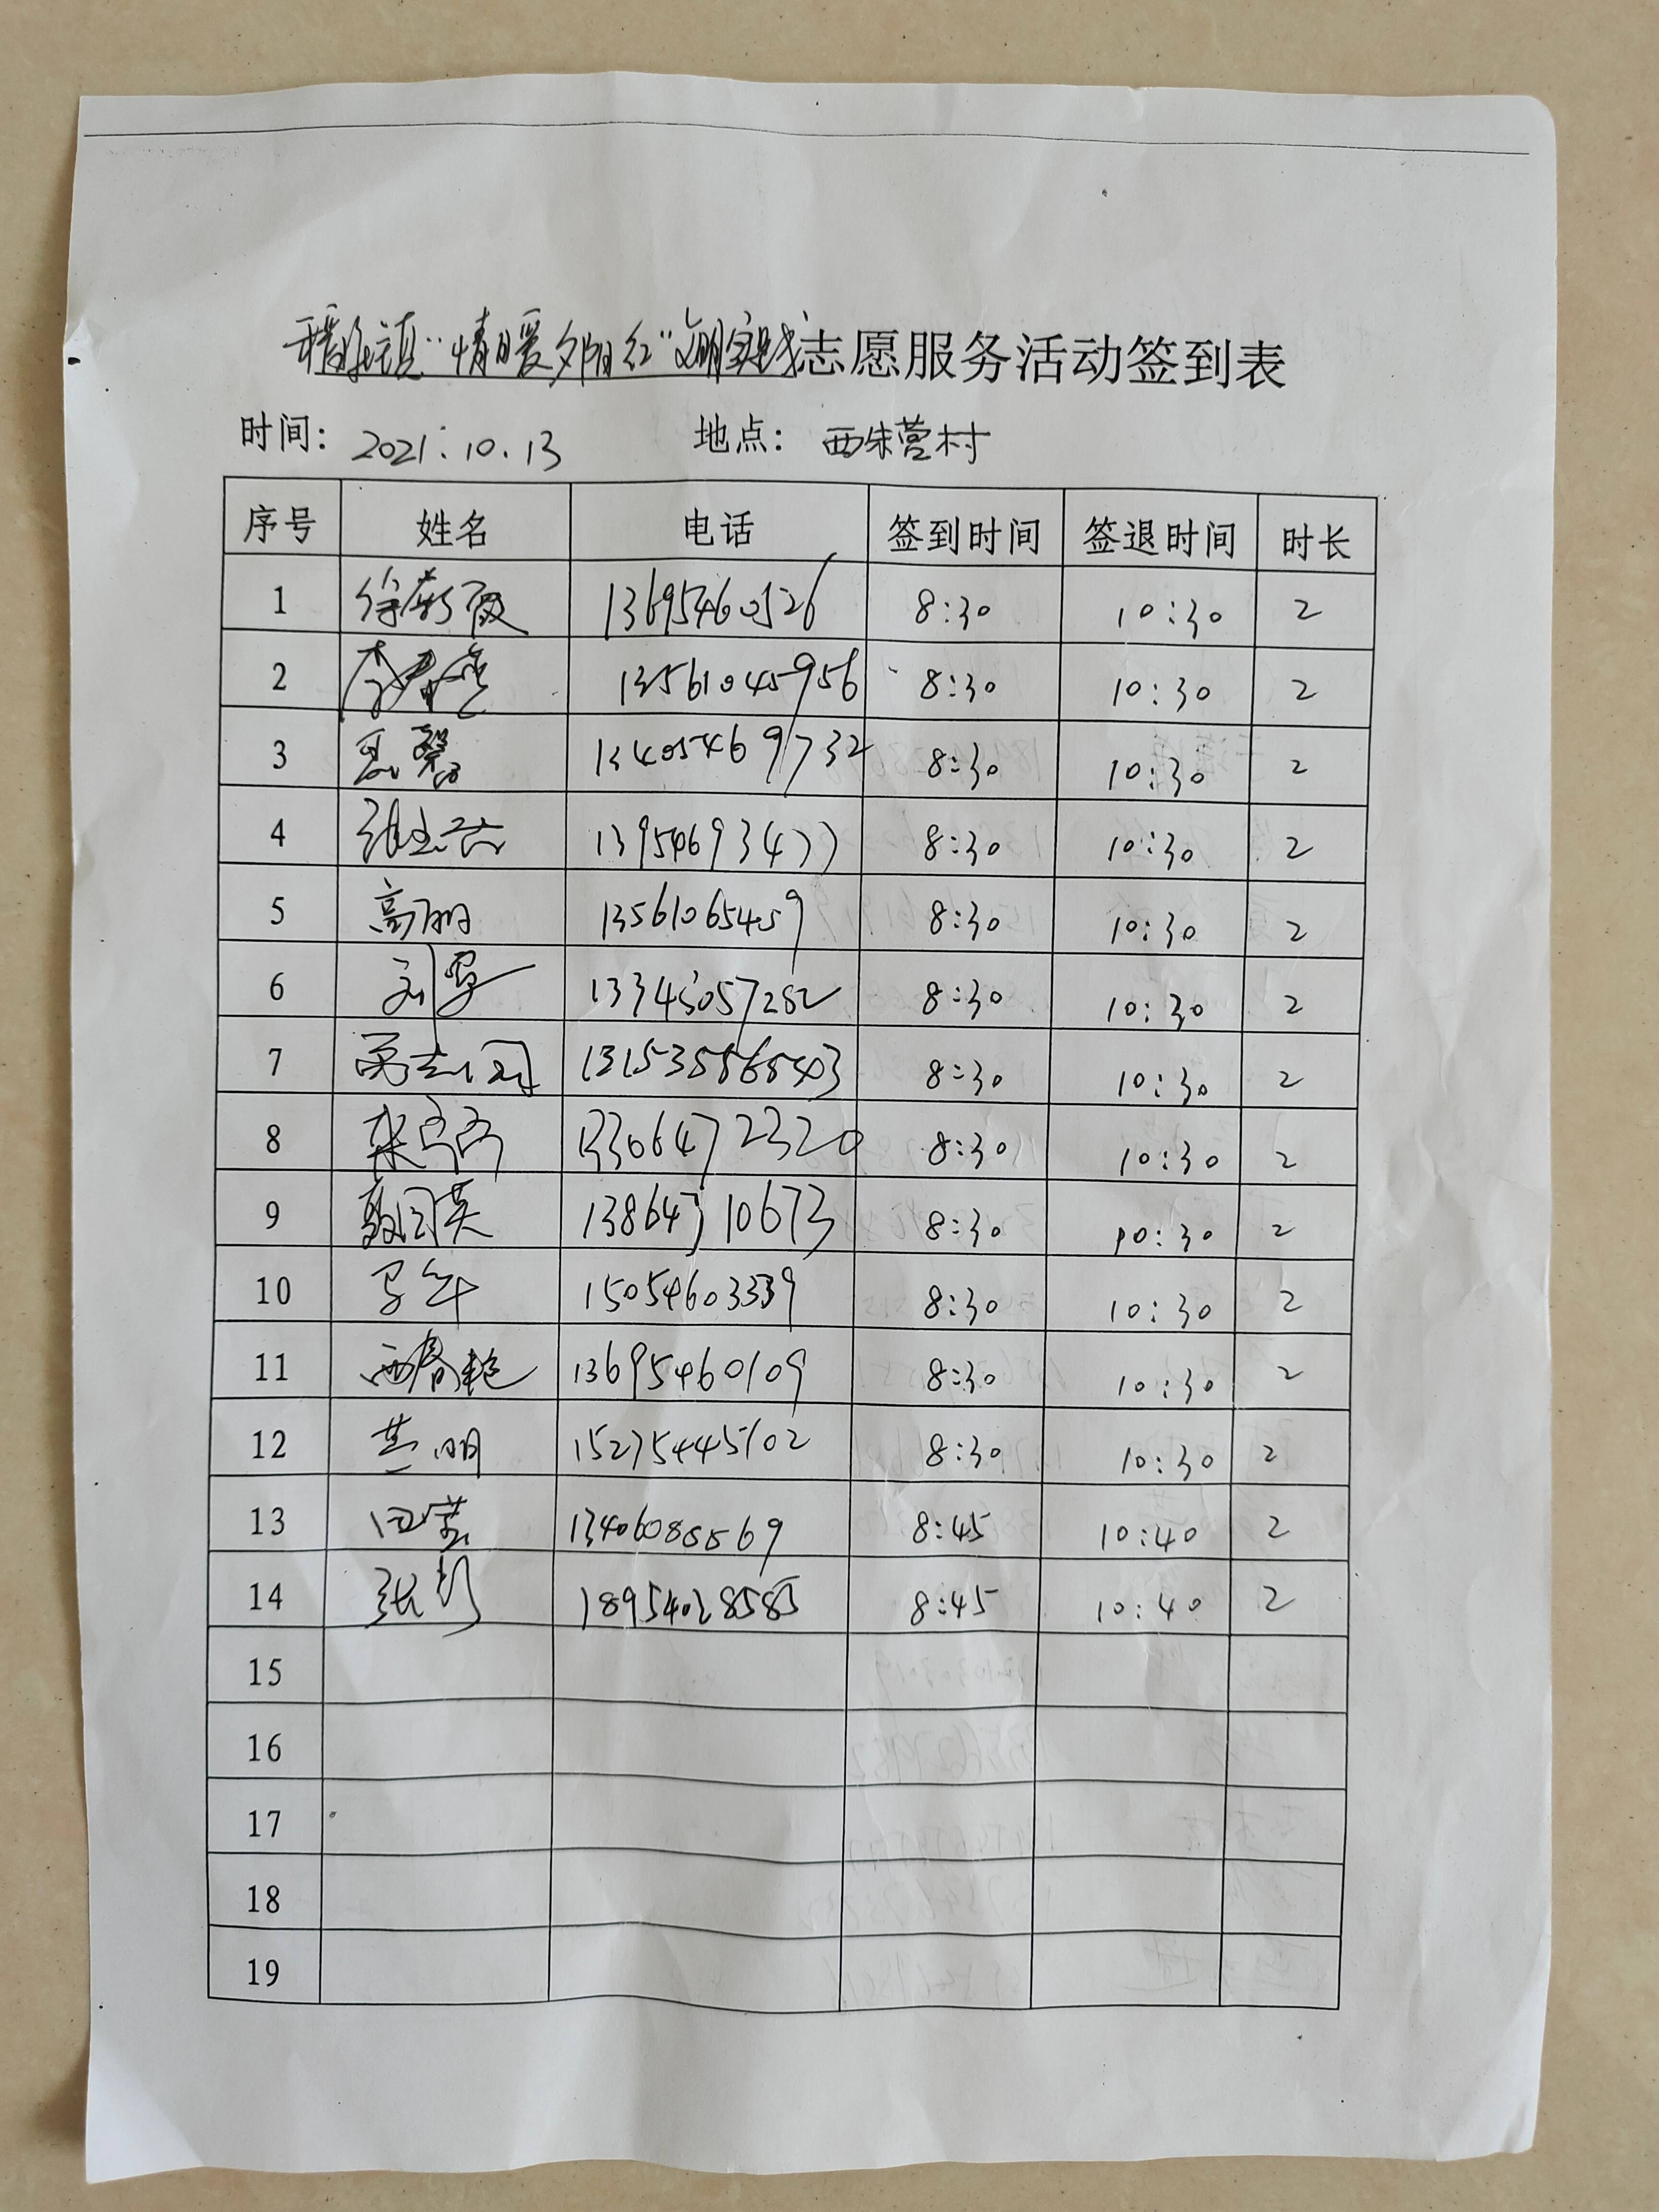 稷下街道"情暖夕阳红"文明实践志愿服务活动签到表
时间：2021.10.13 地点：西朱营村
序号 姓名 电话 签到时间 签退时间 时长
1 13695460526 8:30 10:30 2
2 13561045956 8:30 10:30 2
3 13405469732 8:30 10:30 2
4 13954693477 8:30 10:30 2
5 高丽 13561065459 8:30 10:30 2
6 刘军 13345057282 8:30 10:30 2
7 8:30 10:30 2
8 13306472320 8:30 10:30 2
9 13864710673 8:30 10:30 2
10 15054603339 8:30 10:30 2
11 西春艳 13695460109 8:30 10:30 2
12 黄明 15275445102 8:30 10:30 2
13 13406088569 8:45 10:40 2
14 18954028585 8:45 10:40 2
15
16
17
18
19